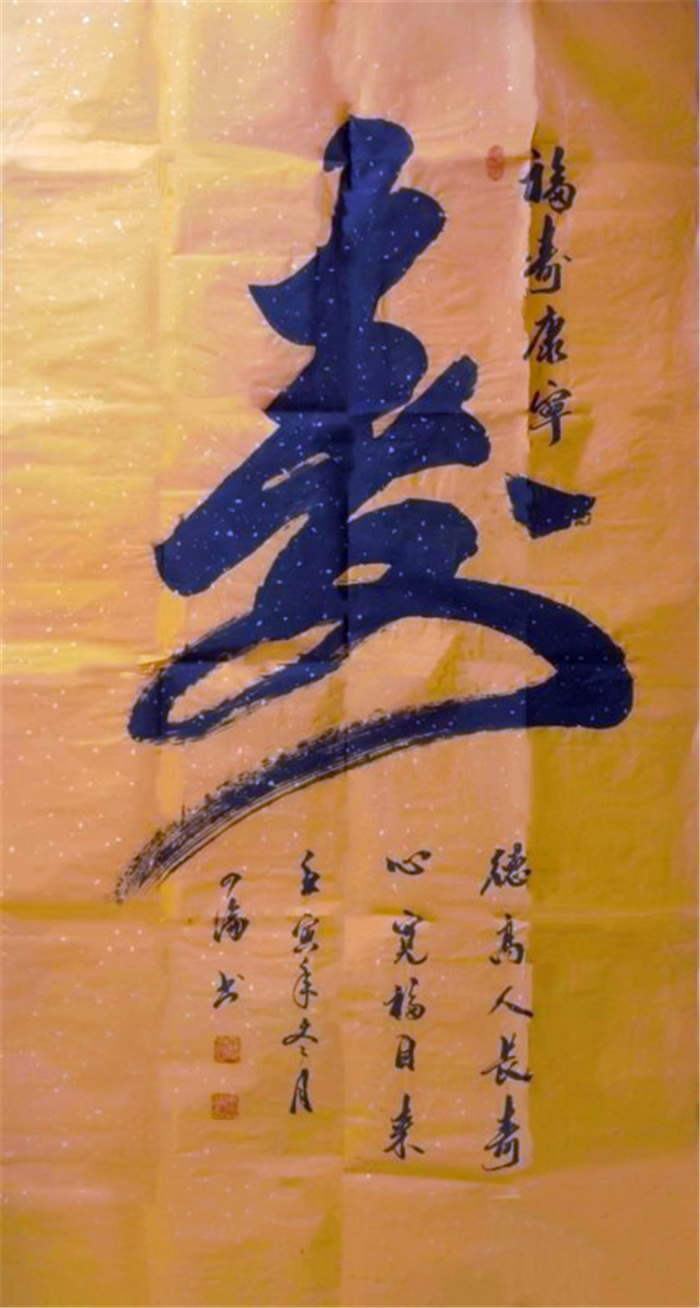 福寿康宁
寿
德高人长寿
心宽福自来
壬寅年冬月
书